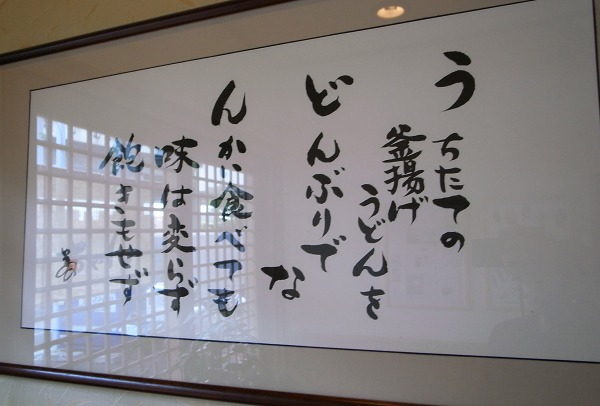 うちたての
釜揚げ
うどんを
どんぶりで
な
んかい食べても
味は変らず
飽きもせず